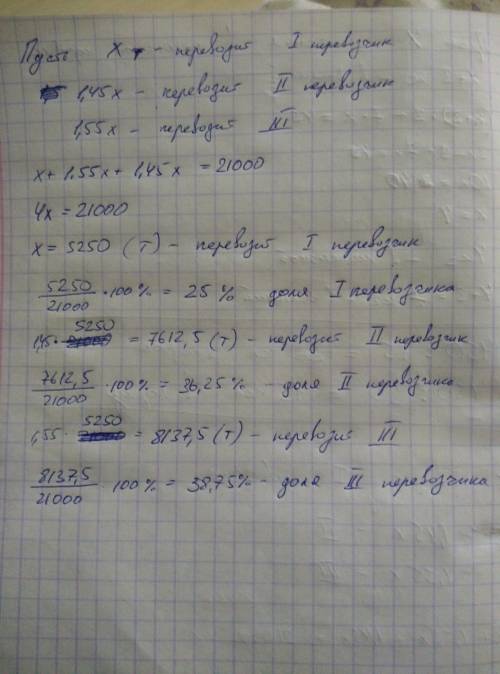 Пусть х - перевозит I перевозчик
1,45х - перевозит II перевозчик
1,55х - перевозит III
х + 1.55х + 1,45х = 21000
4х = 21000
х = 5250 (т) - перевозит I перевозчик
5250/21000 · 100% = 25% - доля I перевозчика
1,45 · 5250 = 7612,5 (т) - перевозит II перевозчик
7612,5/21000 · 100% = 36,25% - доля II перевозчика
1,55 · 5250 = 8137,5 (т) - перевозит III
8137,5/21000 · 100% = 38,75% - доля III перевозчика